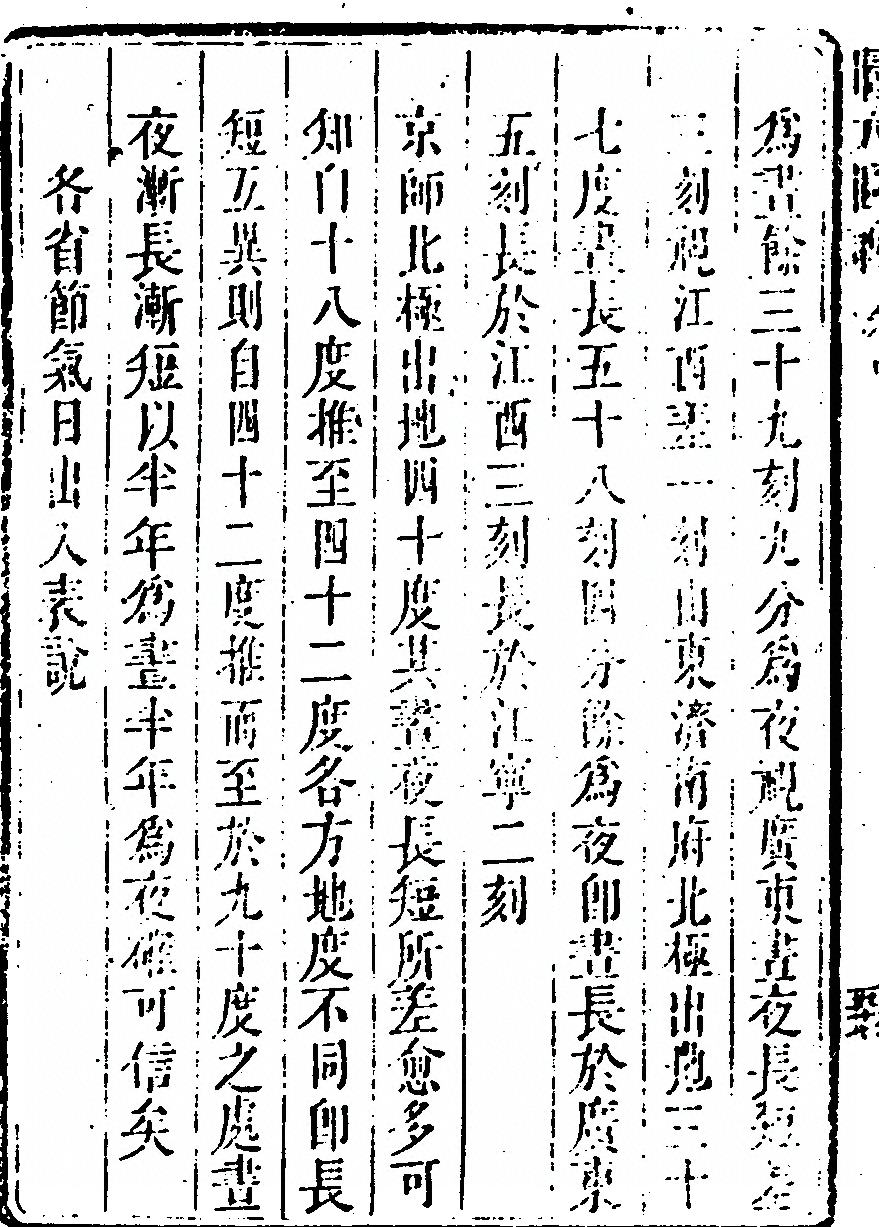 為晝餘三十九刻九分為夜視廣東晝夜長短差
三刻視江西差一刻山東濟南府北極出地三十
七度晝長五十八刻四分餘為夜即晝長於廣東
五刻長於江西三刻長於江寧二刻
京師北極出地四十度其晝夜長短所差愈多可
知自十八度推至四十二度各方地度不同即長
短互異則自四十二度推而至於九十度之處晝
夜漸長漸短以半年為晝半年為夜確可信矣
各省節氣日出入表說